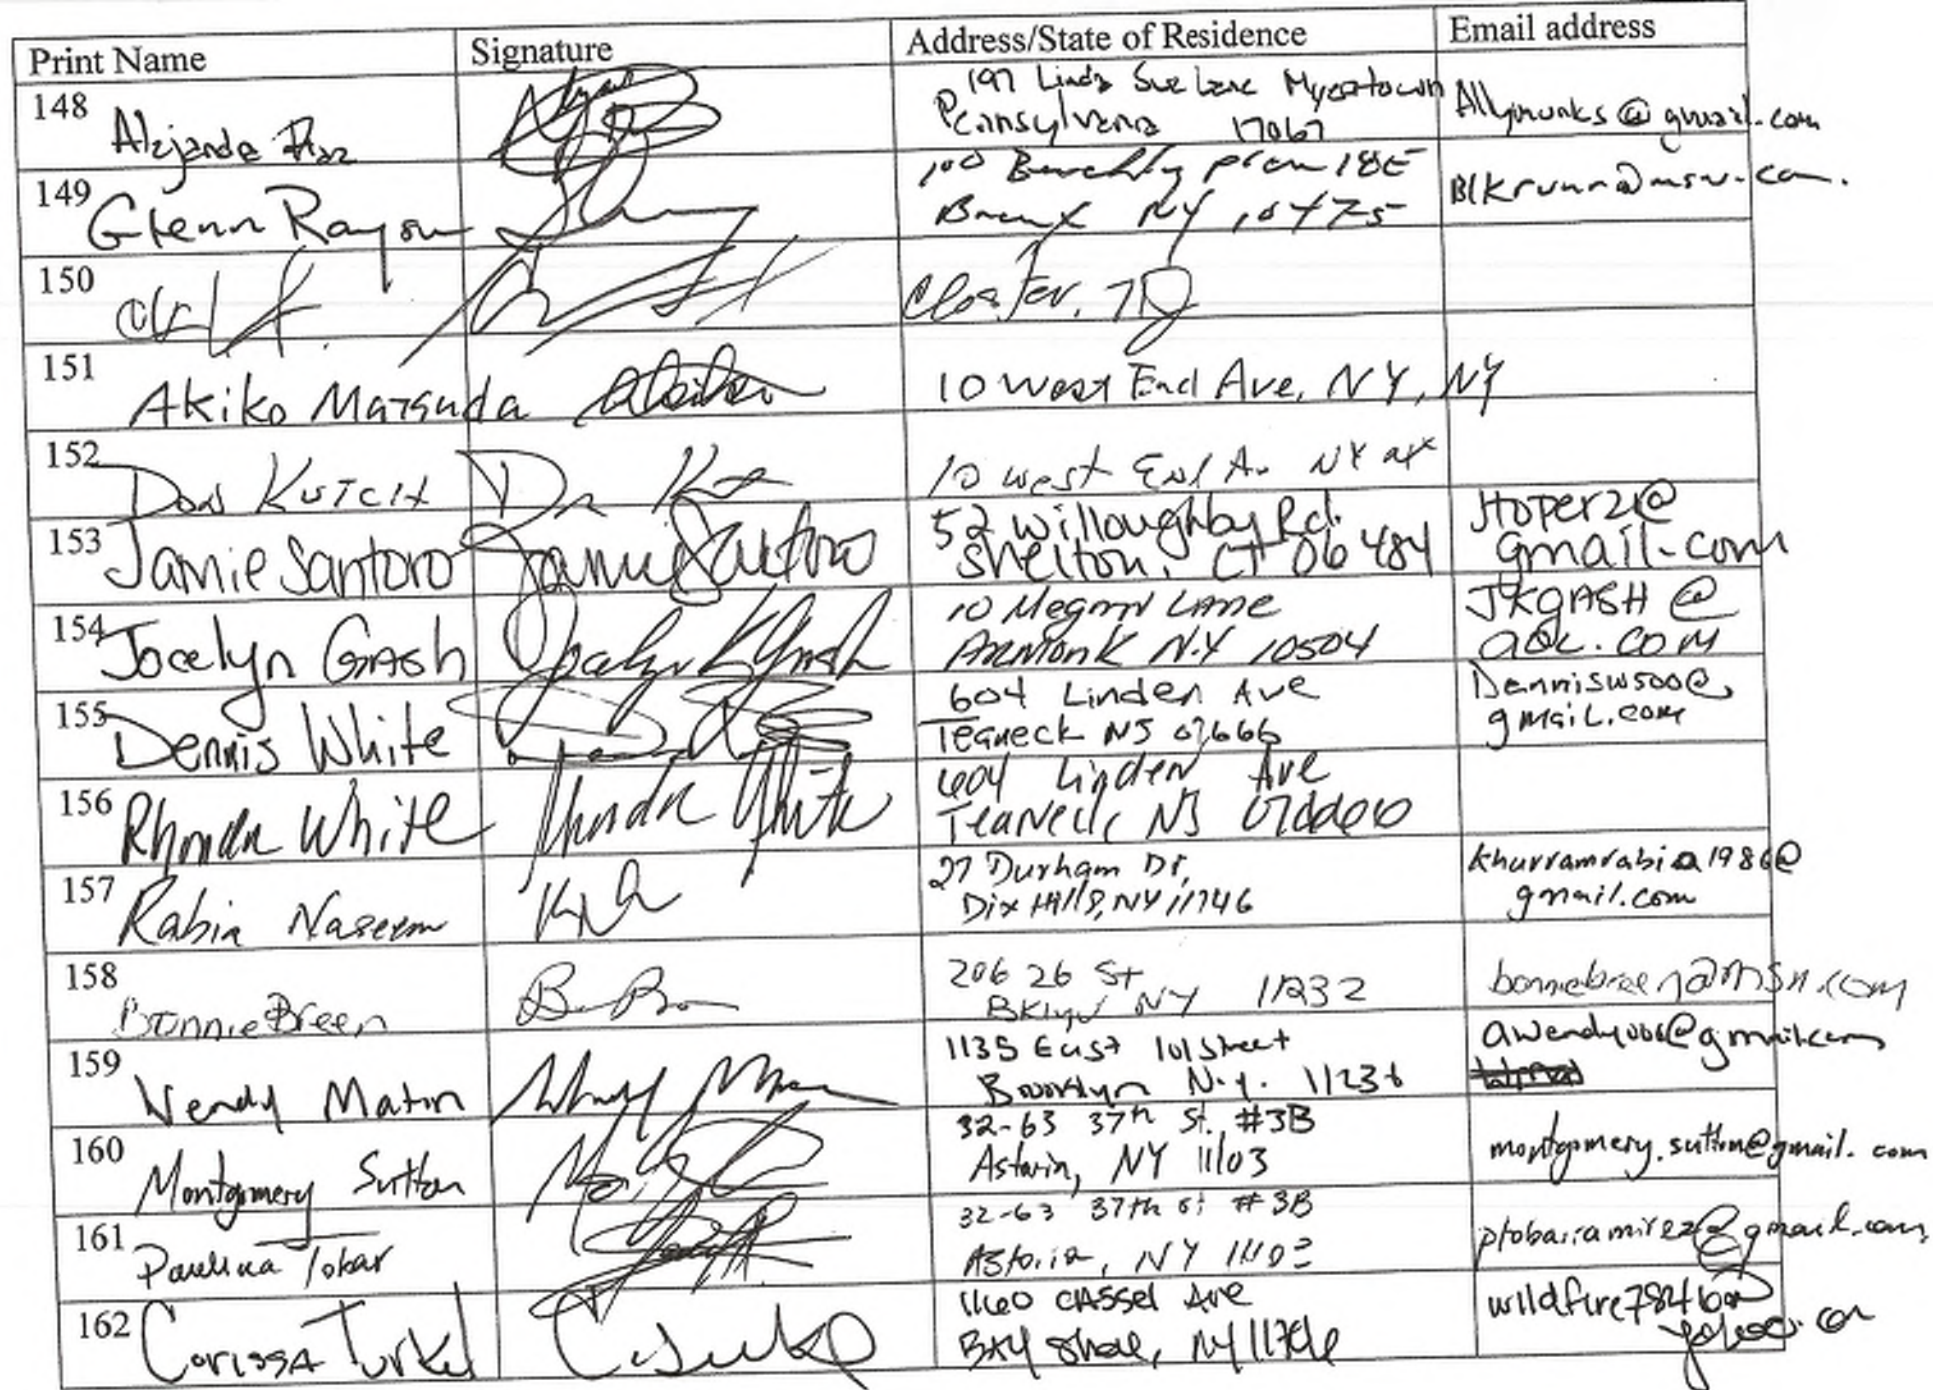 Print Name Signature Address/State of Residence Email address
148 Alejandra Diaz 197 Linda Sue Lane Myerstown
Pennsylvania 17067 @gmail.com
149 Glenn 100 18E
Bronx NY 10475 Blkrunr@msn.com.
150 Closter, NJ
151 Akiko Matsuda 10 West End Ave, NY, NY
152 Don 10 West End Av NY
153 Jamie Santoro Jamie Santoro 52 Willoughby Rd.
Shelton, CT 06484 JToper2@
gmail.com
154 Jocelyn Gash Jocelyn K Gash 10 Megan Lane
Armonk N.Y 10504 JKGASH@
aol.com
155 Dennis White 604 Linden Ave
Teaneck NJ 07666 Dennisw500@
gmail.com
156 Rhonda White Rhonda White 604 Linden Ave
Teaneck, NJ 07666
157 Rabia Naseem 27 Durham Dr,
Dix Hills, NY 11746 khurramrabia1986@
gmail.com
158 Bonnie Breen 206 26 St
Bklyn NY 11232 bonniebreen@msn.com
159 Wendy 1135 East 101 Street
Brooklyn N.Y. 11236 awendy006@gmail.com
160 Montgomery Sutton 32-63 37th St. #3B
Astoria, NY 11103 montgomery.sutton@gmail.com
161 Paulina Tobar 32-63 37th St #3B
Astoria, NY 11103 ptobarramirez@gmail.com
162 Corissa 1160 Cassel Ave
Bay Shore, NY 11706